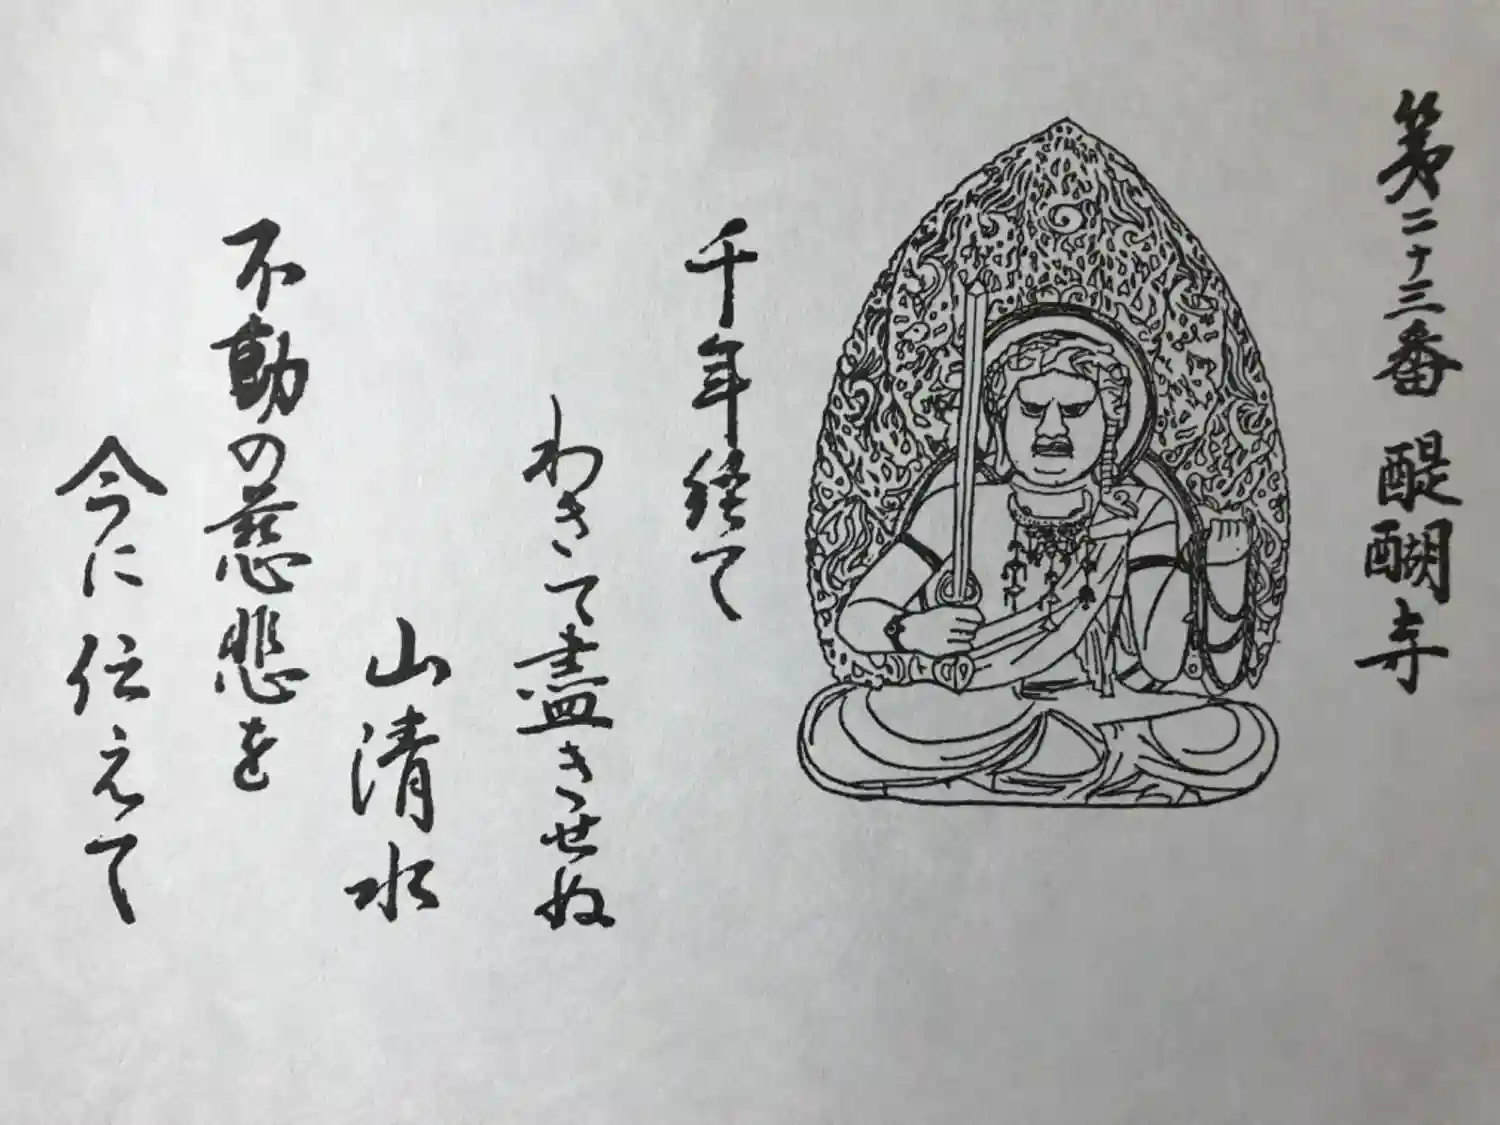 第二十三番 醍醐寺
千年経て
わきて尽きせぬ
山清水
不動の慈悲を
今に伝えて